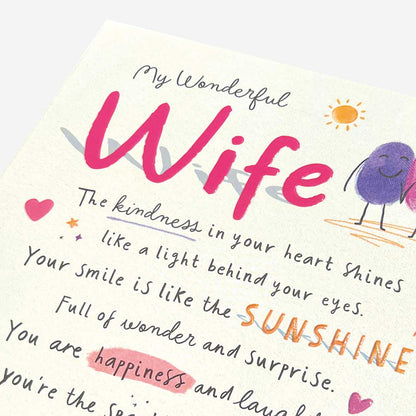 My Wonderful
Wife
The kindness in your heart shines
like a light behind your eyes.
Your smile is like the SUNSHINE
Full of wonder and surprise.
You are happiness and
you're the